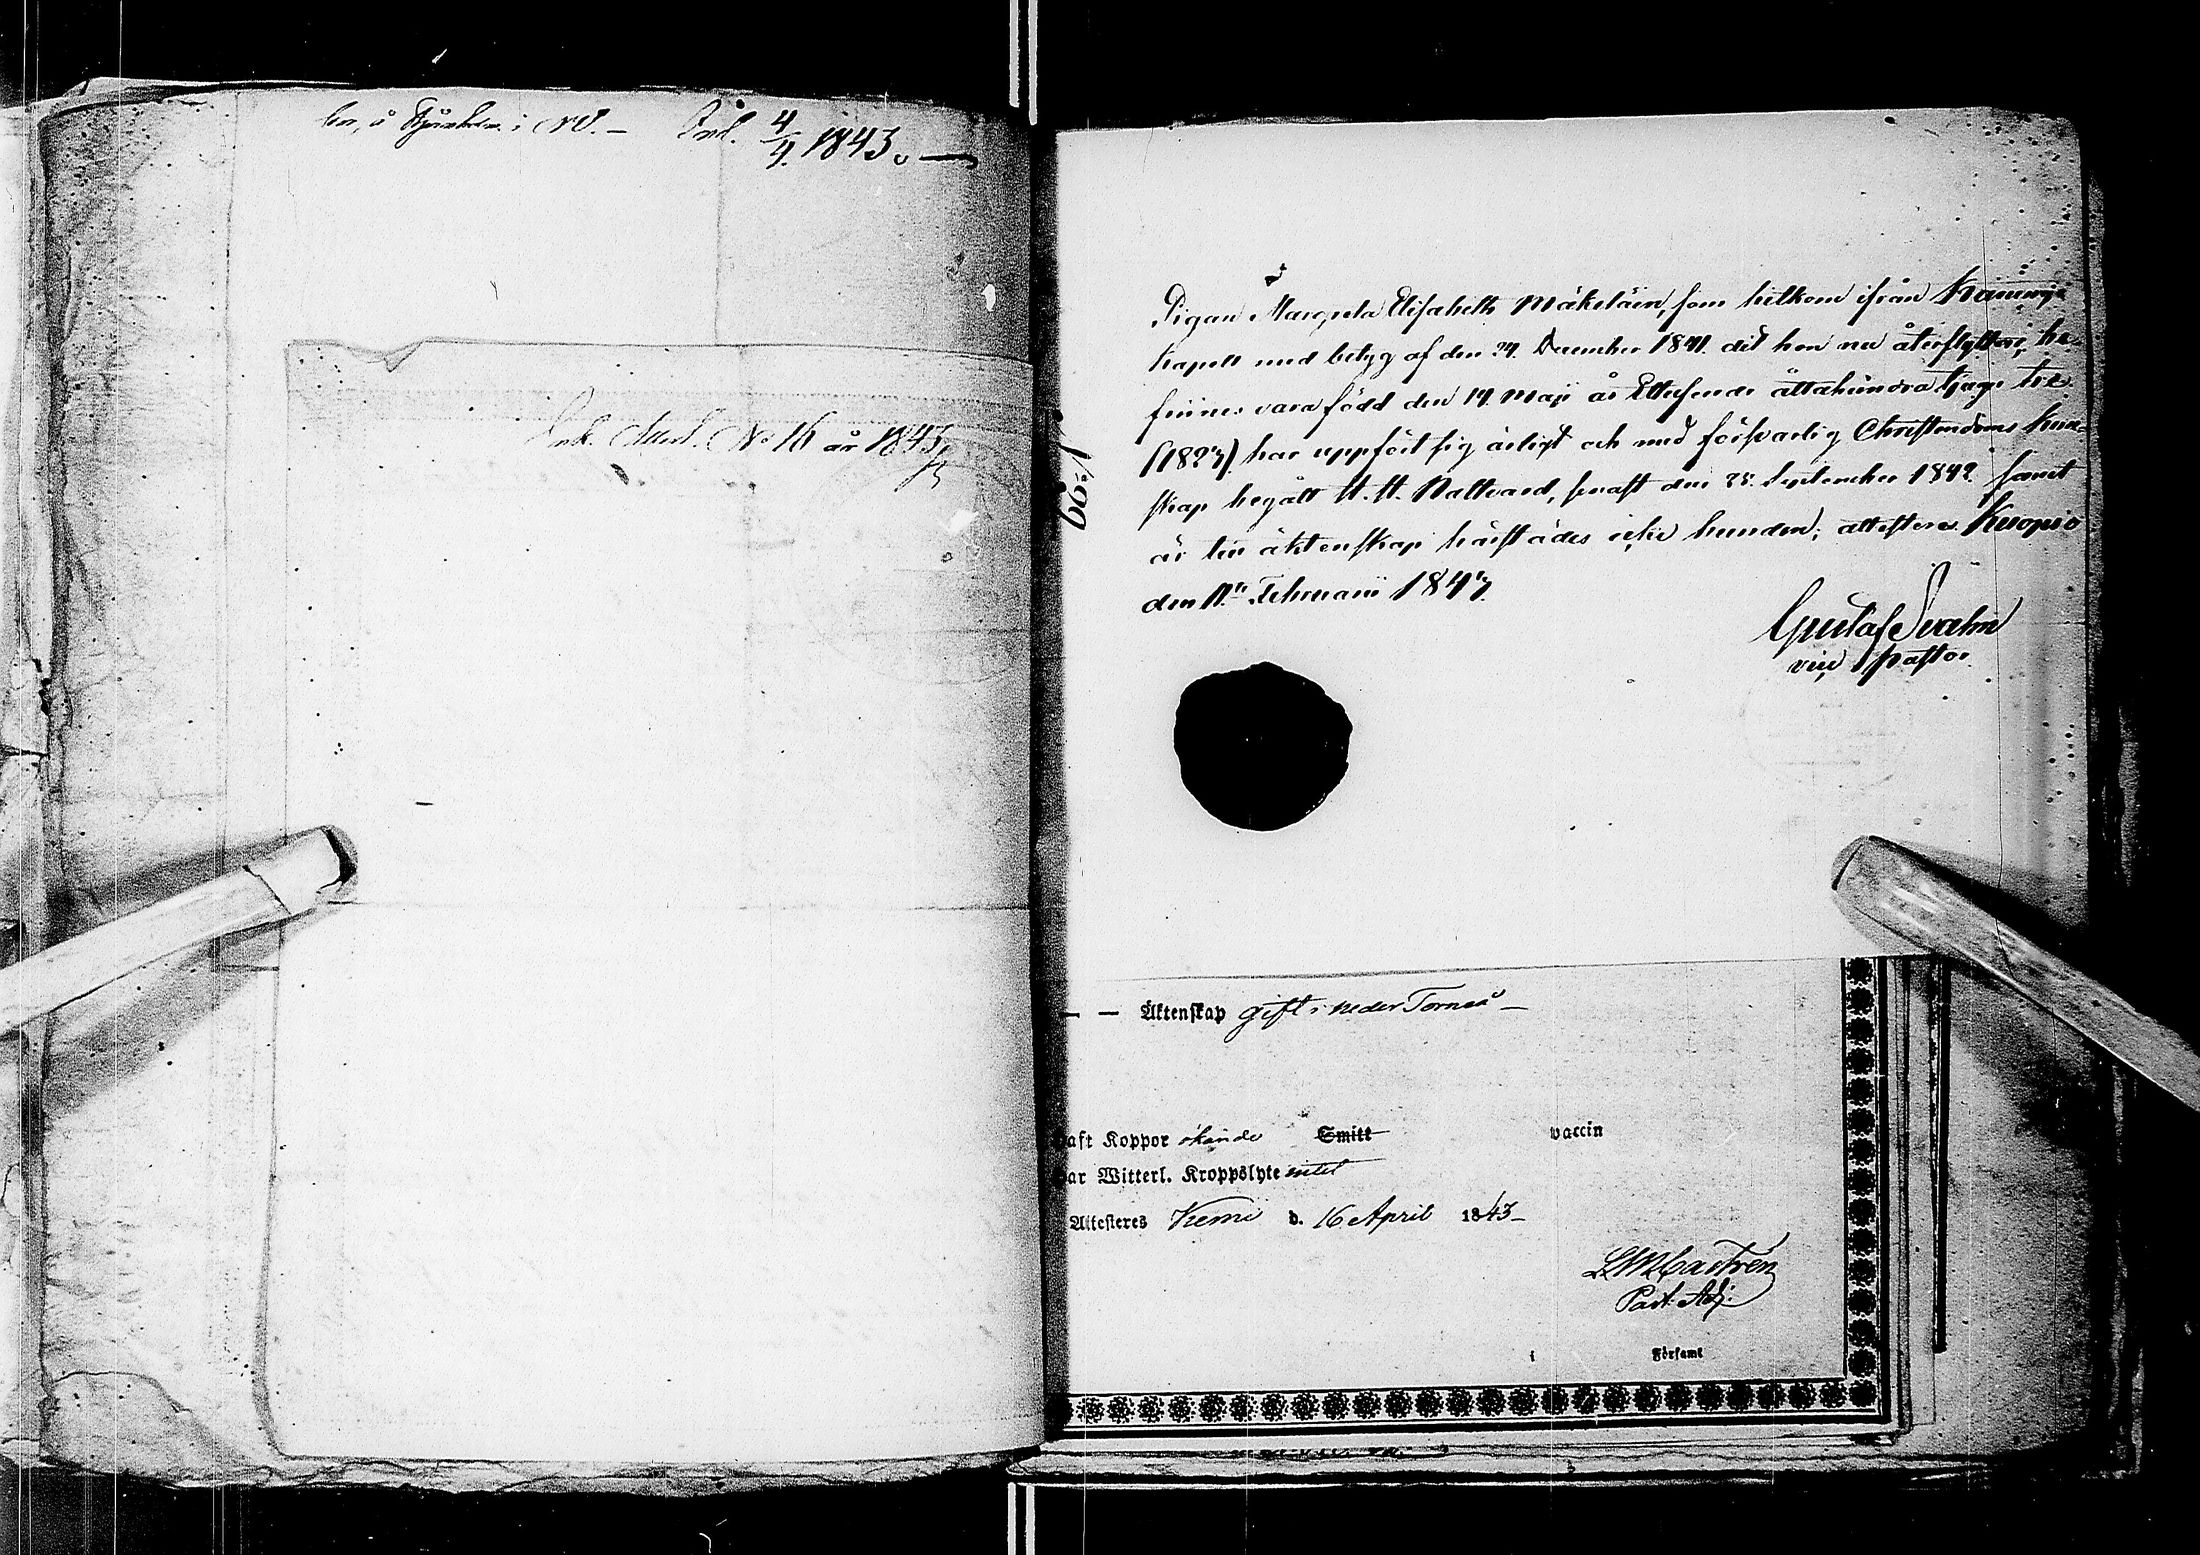 ber, å i NB. — Inl. 4/4. 1843. —
Ink. Attest. No 16 år 1843.
Pigan Margreta Elisabeth Mäkeläin, som hitkom ifrån
Kapell med betyg af den 24. December 1841. dit hon nu återflyttar, be-
finnes vara född den 14. Maji år Ettusende åttahundra tjugu tre
(1823). har uppfört sig ärligt och med försvarlig Christendoms kun-
skap begått H. H. Nattvard, senast den 25. September 1842. samt
är till äktenskap härstädes icke bunden; attesteras. Kuopio
den 11.te Februarii 1843.
Gustaf Svahn
vice pastor.
— — Äktenskap gift i neder Torneå —
aft Koppor okände Smitt vaccin
ar Witterl. Kroppslyte intet
Attesteres Kemi d. 16 April 1843 —
LM Castrén
Past. Adj.
i Församl